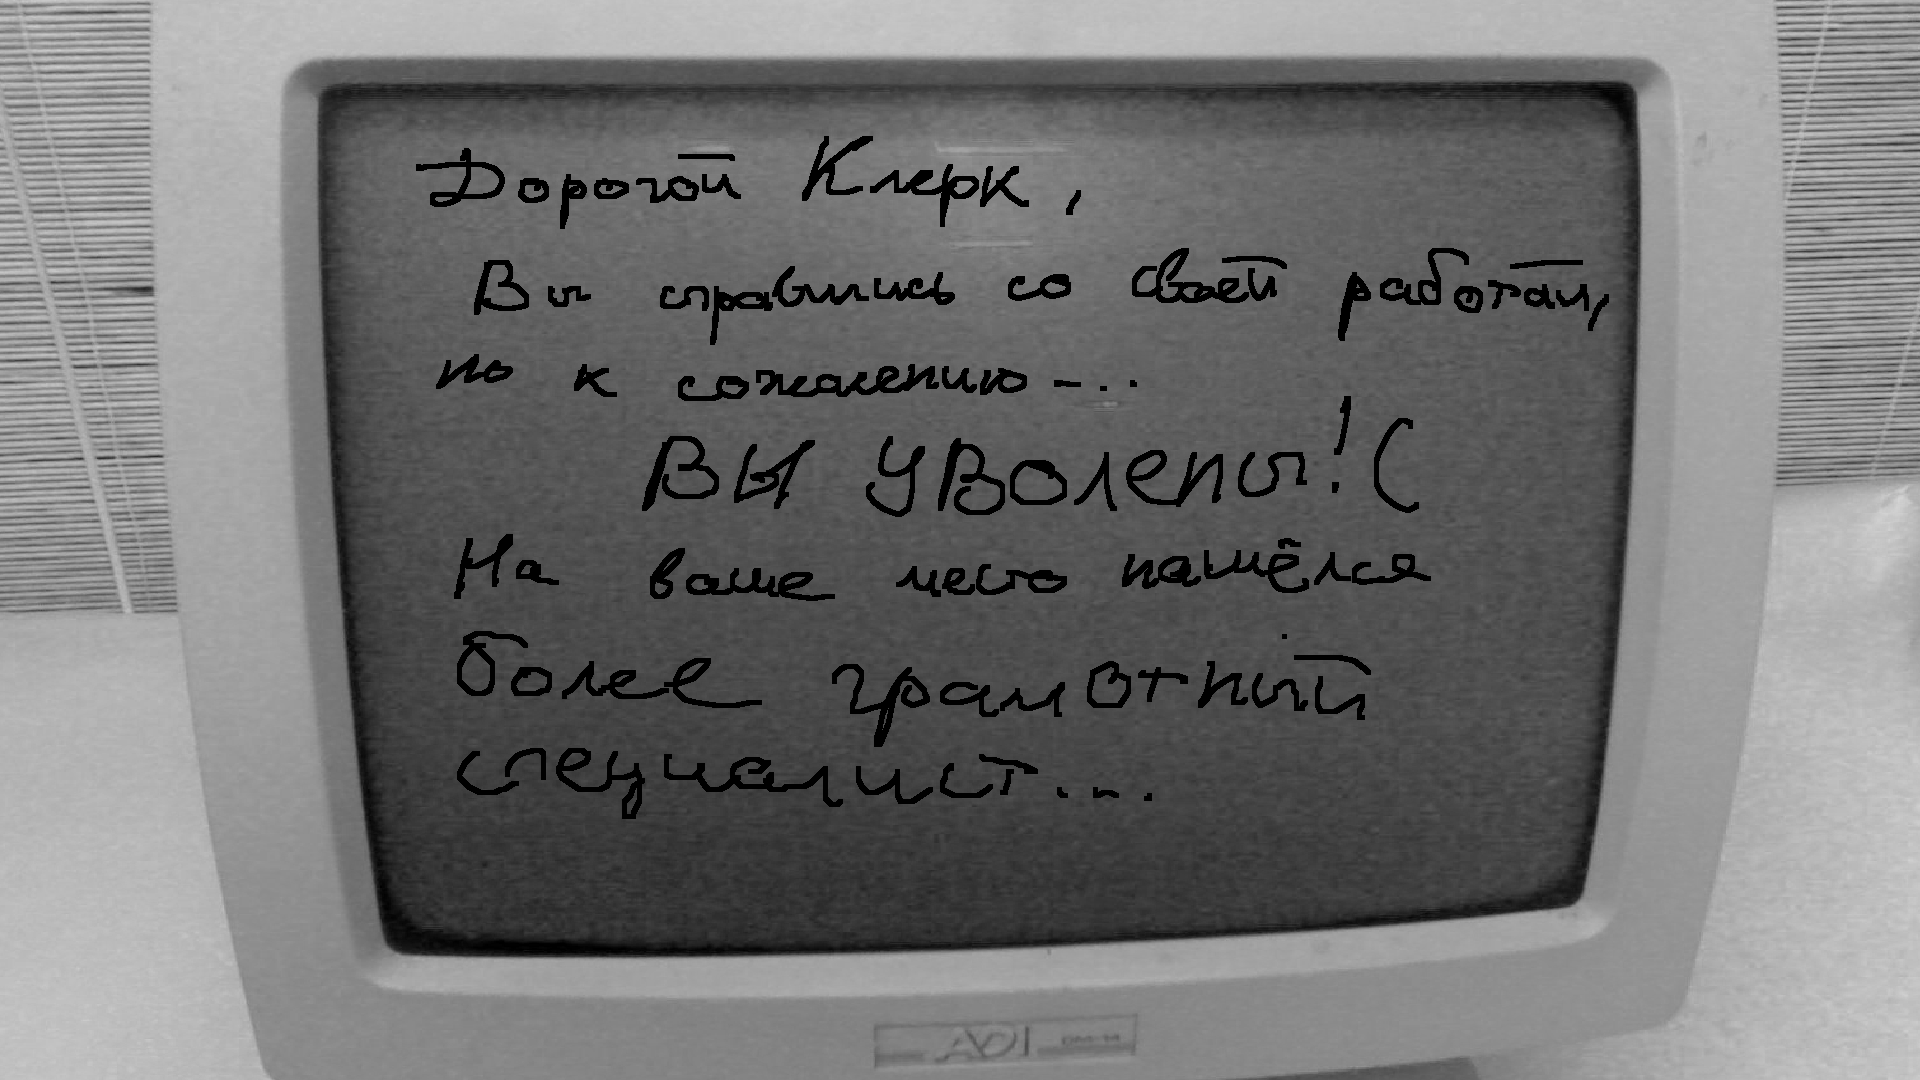 Дорогой Клерк,
Вы справились со своей работой,
но к сожалению...
ВЫ УВОЛЕНЫ!(
На ваше место нашёлся
более грамотный
специалист...
ADI